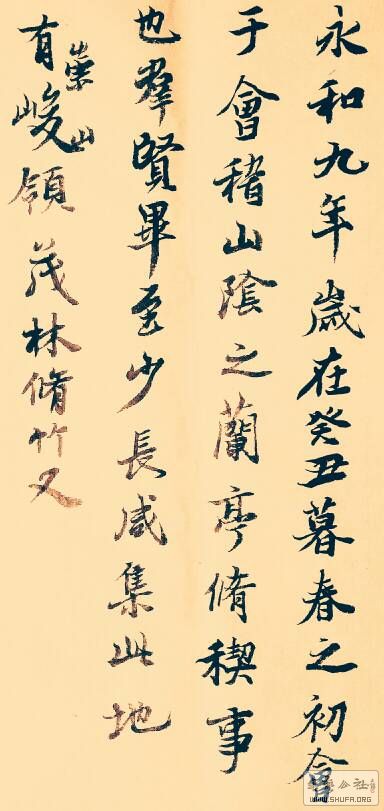 永和九年歲在癸丑暮春之初會
于會稽山陰之蘭亭脩稧事
也羣賢畢至少長咸集此地
有崇山峻領茂林脩竹又
WWW.SHUFA.ORG